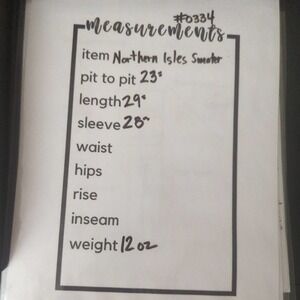 #0334
measurements
item Northern Isles Sweater
pit to pit 23"
length 29"
sleeve 28"
waist
hips
rise
inseam
weight 12 oz